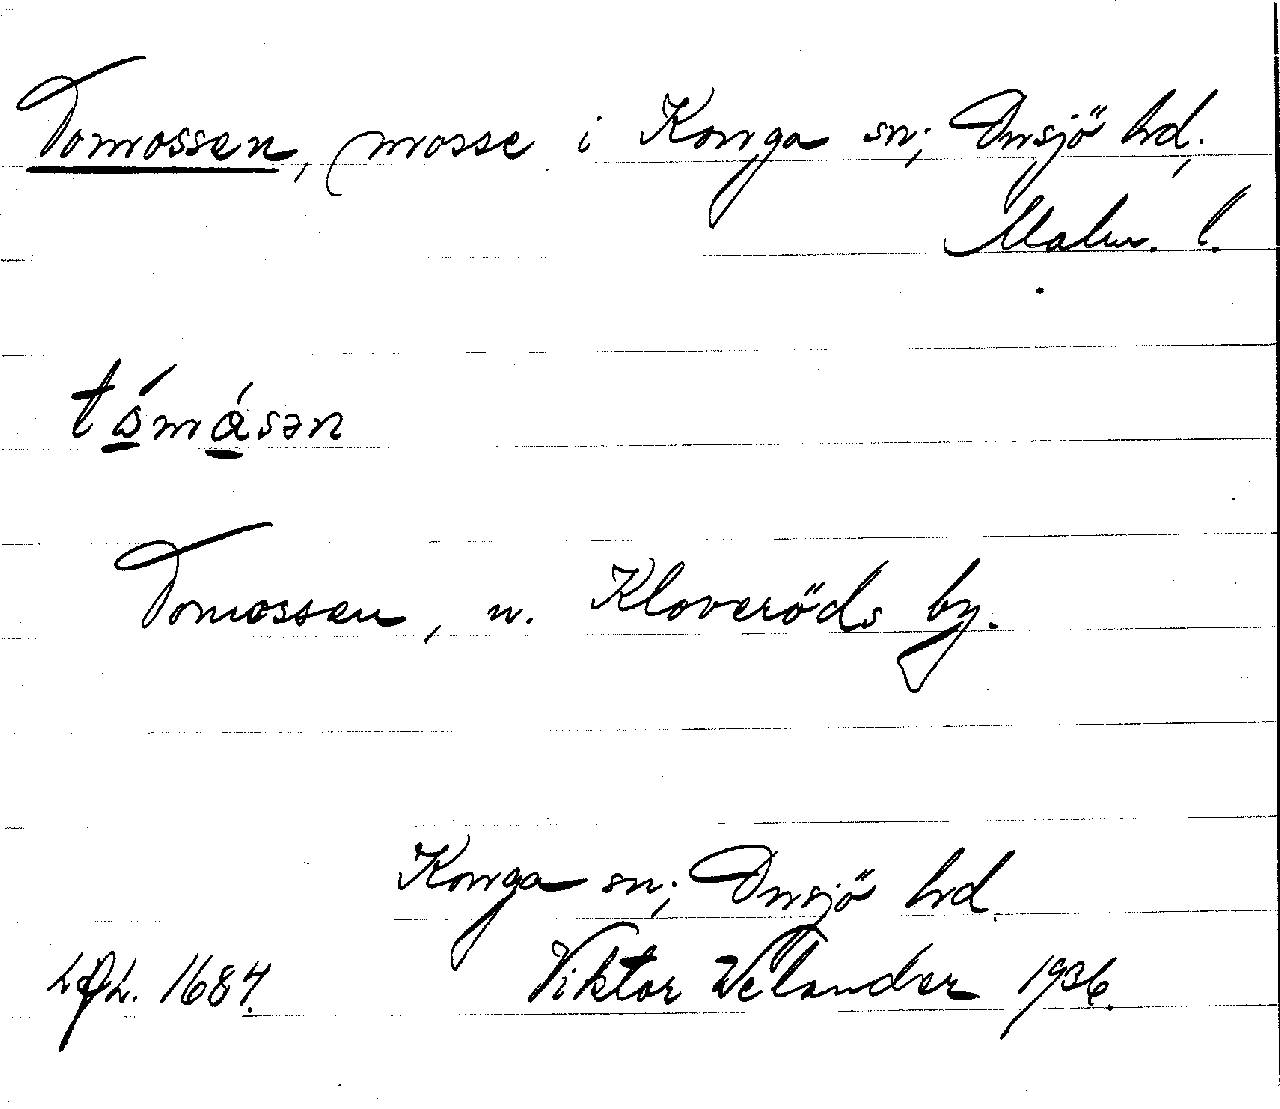 Tomossen, mosse i Konga sn; Onsjö hd,
Malm. l.
tómásən
Tomossen, n. Kloveröds by.
Konga sn; Onsjö hd.
1684. Viktor Welander 1936.